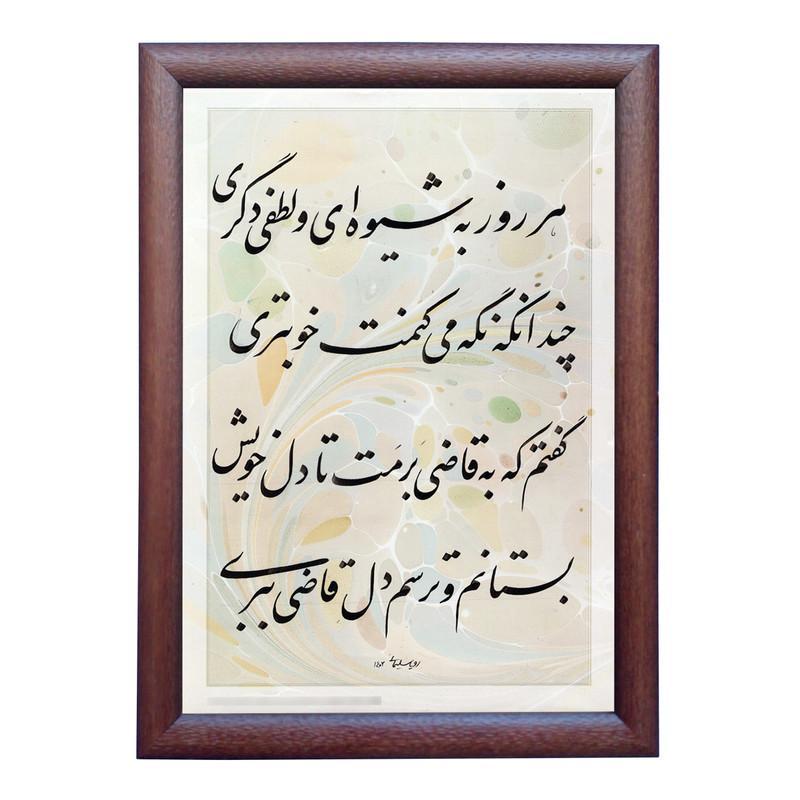 هر روز به شیوه‌ای و لطفی دگری
چندانکه نگه می‌کنمت خوبتری
گفتم که به قاضی بَرمَت تا دل خویش
بستانم و ترسم دل قاضی ببری
رویا سلیمانی ۱۴۰۲